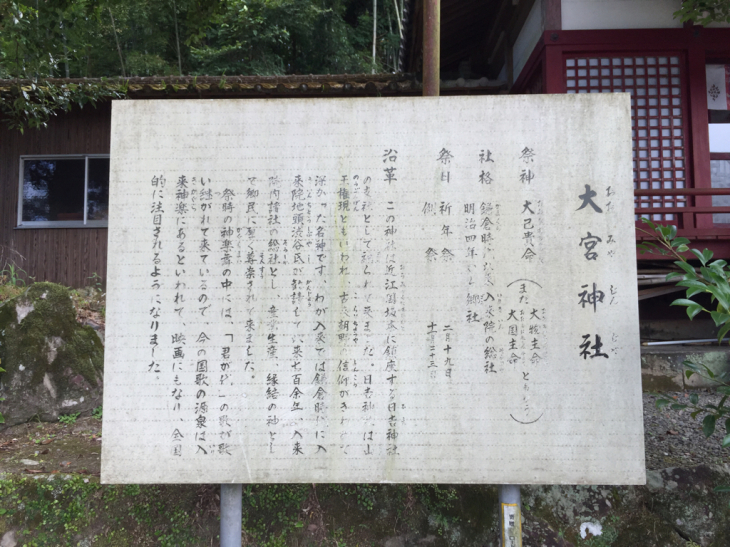 大宮神社
おお みや じん じゃ
祭神 大己貴命(また 大物主命
大国主命 ともいう)
社格 鎌倉時代 入来院の総社
明治四年 郷社
祭日 祈年祭 二月十九日
例祭 十一月二十三日
沿革 この神社は近江国坂本に鎮座する日吉神社
の分社として祀られて来ました。日吉神社は山
王権現ともいわれ 古来朝野の信仰がきわめて
深かった名神です。わが入来では鎌倉時代に入
来院地頭渋谷氏が 以来七百余年、入来
院内諸社の総社とし、産業生産、縁結の神とし
て郷民に厚く尊崇されて来ました。
祭時の神楽舞の中には、「君が代」の歌が歌
い継がれて来ているので、今の国歌の源泉は入
来神楽にあるといわれて、映画にもなり、全国
的に注目されるようになりました。